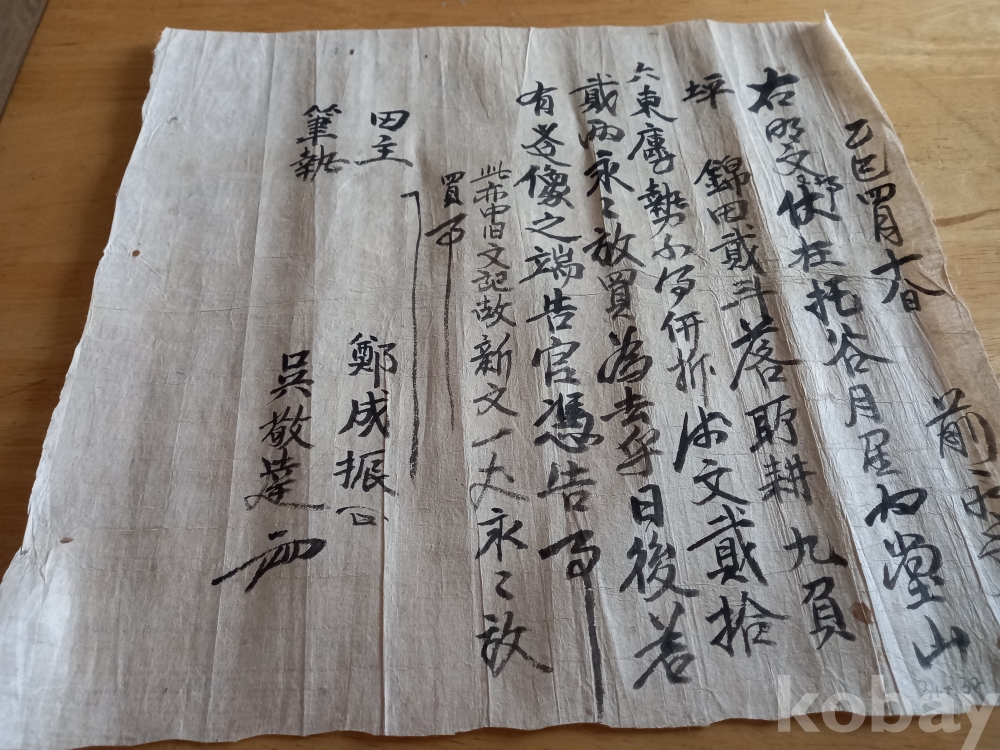 乙巳四月十八日 前
右明文 伏在托谷月星 堂山
坪 錦田貳斗落 耕九負
六東 勢 得併 文貳拾
貳兩永々放買為去乎日後若
有 像之端告官憑告事
此亦中旧文記故新文一丈永々放
買事
田主 鄭成振
筆執 吳敬達
kobay